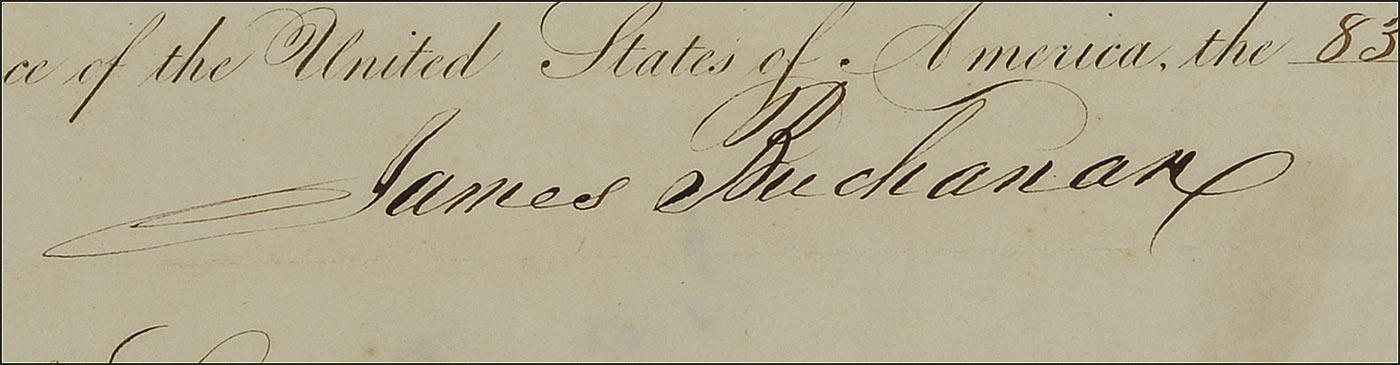 ce of the United States of America, the 83
James Buchanan